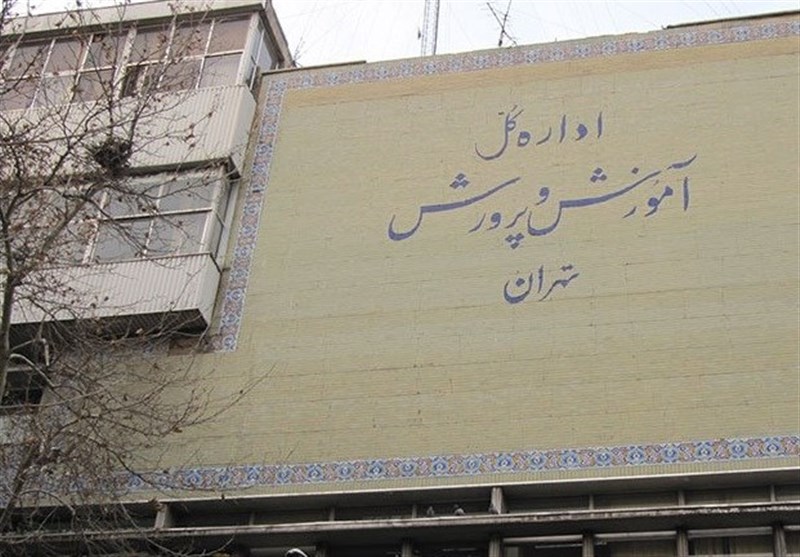 اداره کلّ
آموزش و پرورش
تهران